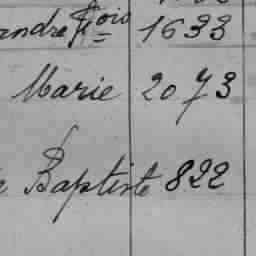 andre Fçois 1633
Marie 2073
Baptiste 822